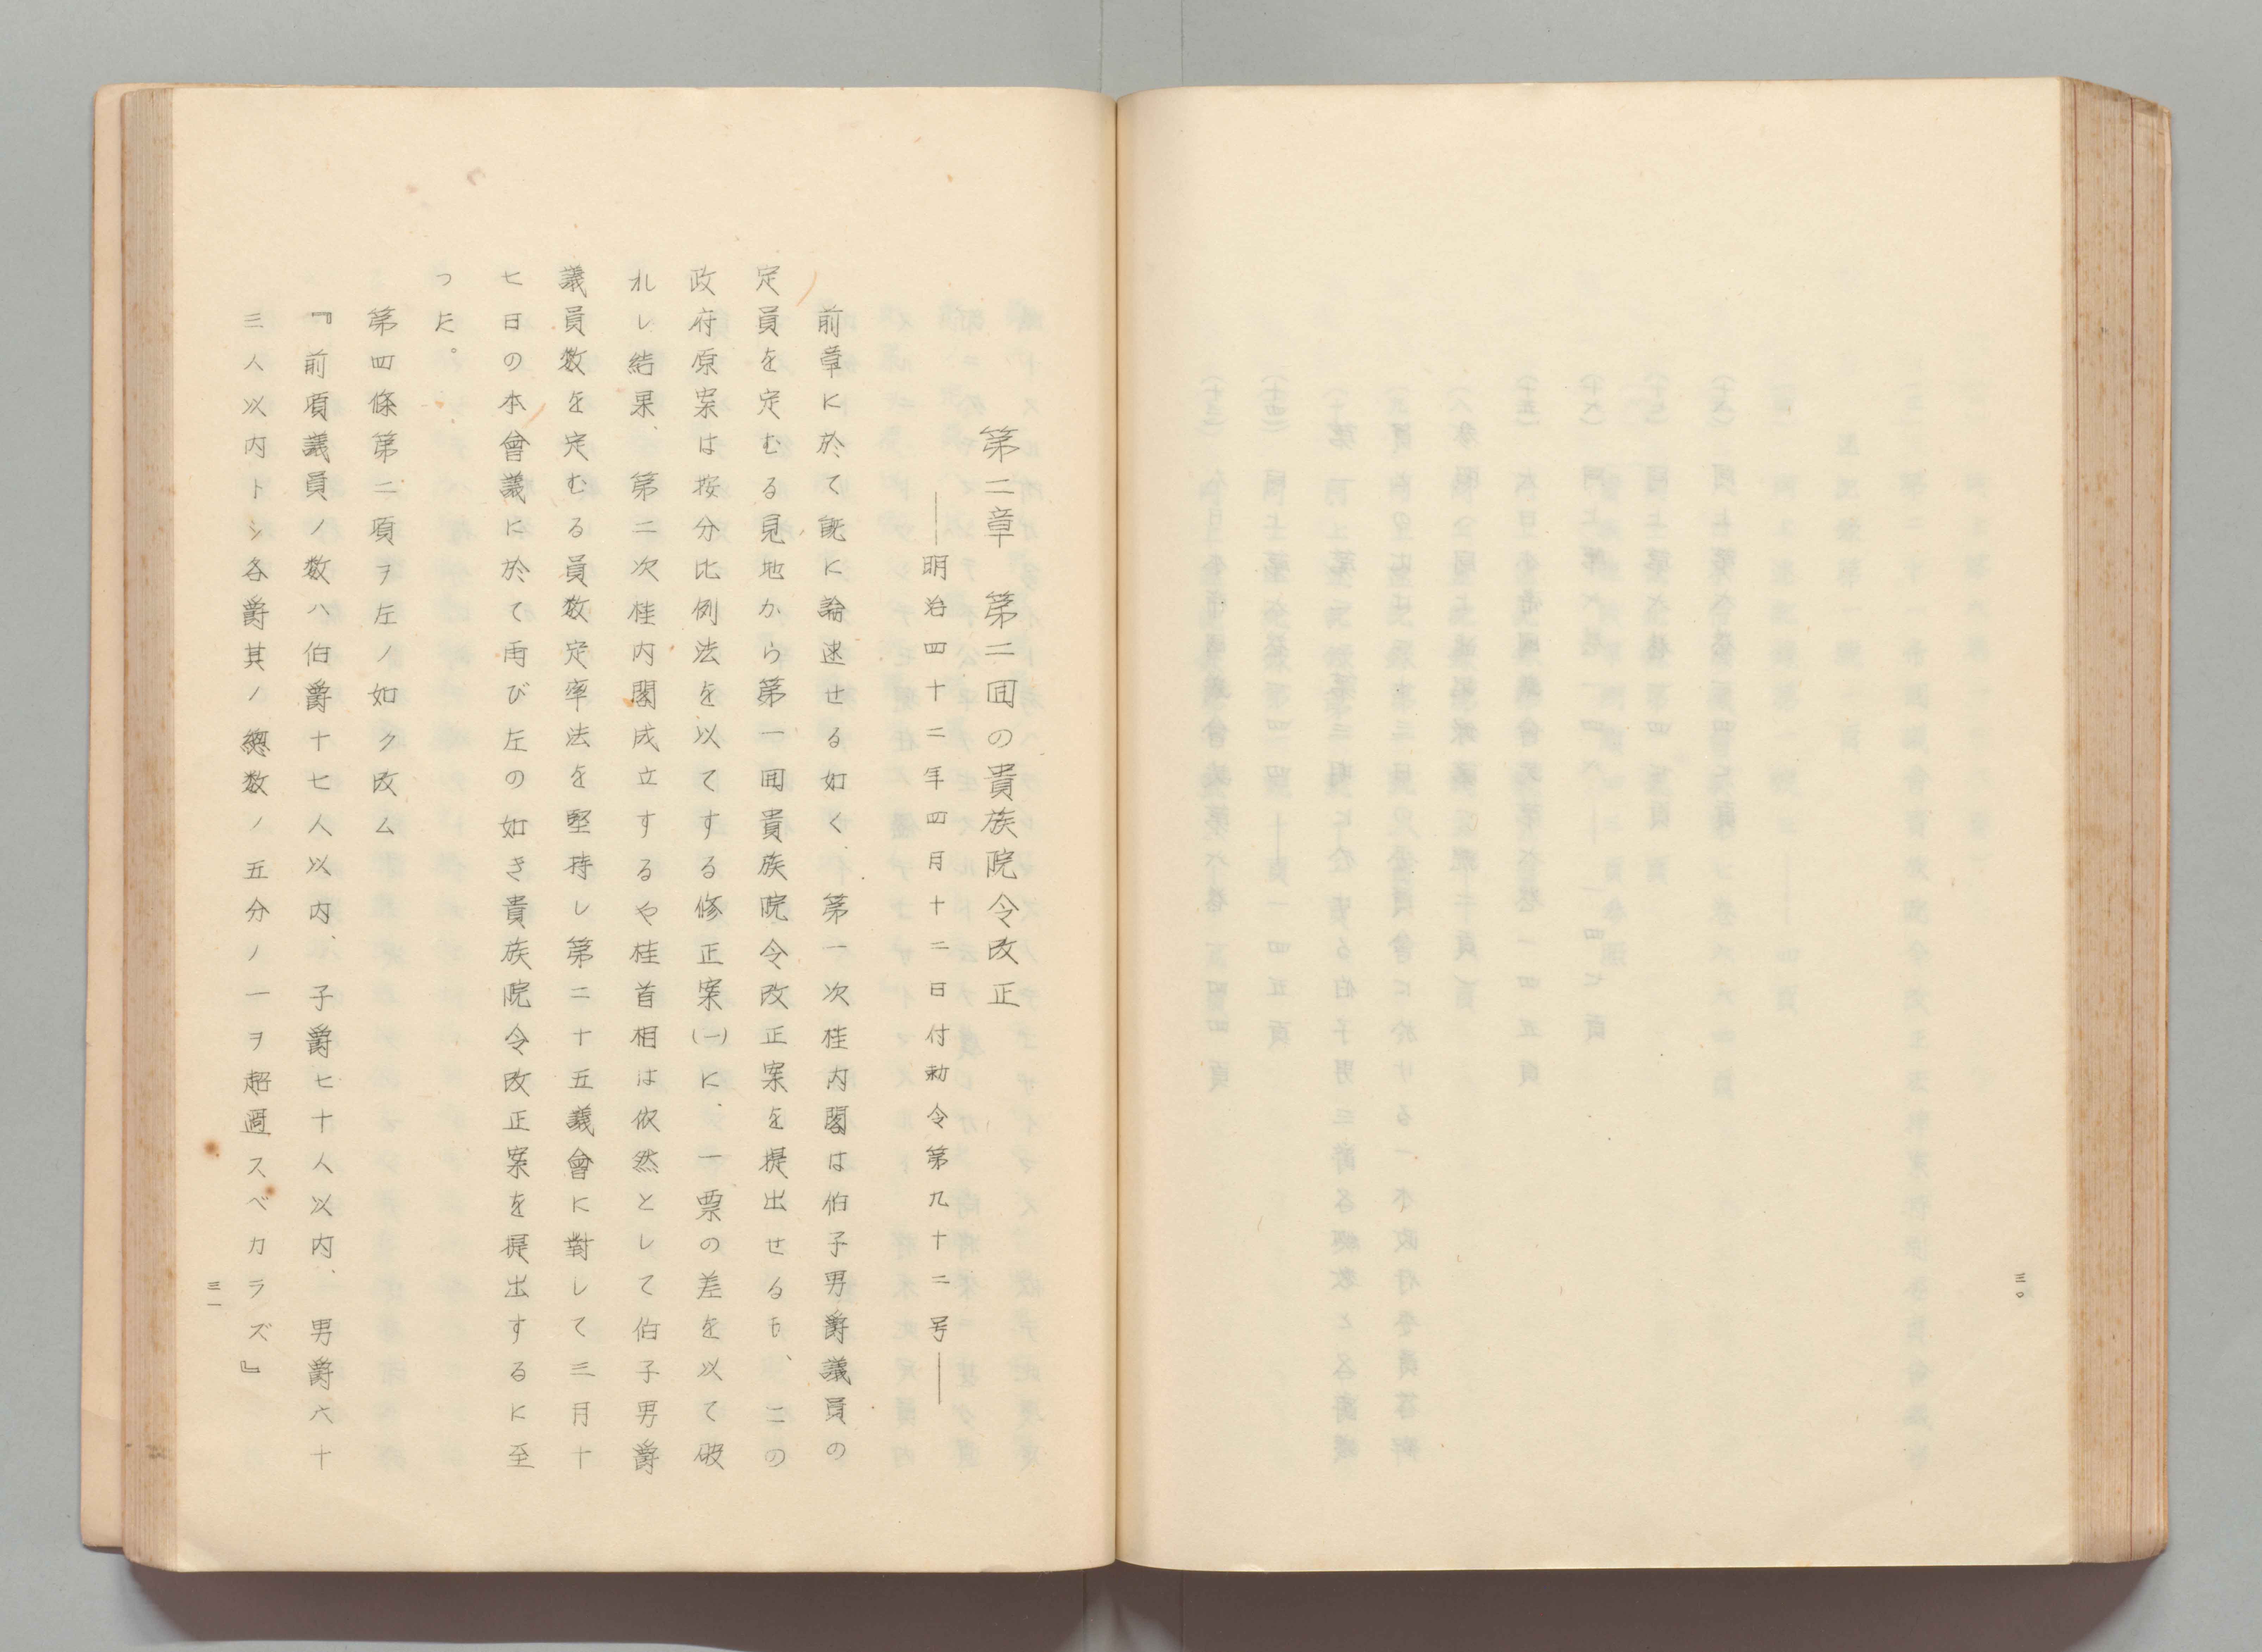 三〇
第二章　第二囬の貴族院令改正
――明治四十二年四月十二日付勅令第九十二号――
前章に於て既に論述せる如く、第一次桂内閣は伯子男爵議員の
定員を定むる見地から第一囬貴族院令改正案を提出せるも、この
政府原案は按分比例法を以てする修正案(一)に、一票の差を以て破
れし結果、第二次桂内閣成立するや桂首相は依然として伯子男爵
議員数を定むる員数定率法を堅持し第二十五議會に對して三月十
七日の本會議に於て再び左の如き貴族院令改正案を提出するに至
った。
第四條第二項ヲ左ノ如ク改ム
『前項議員ノ数ハ伯爵十七人以内、子爵七十人以内、男爵六十
三人以内トシ各爵其ノ總数ノ五分ノ一ヲ超過スベカラズ』
三一